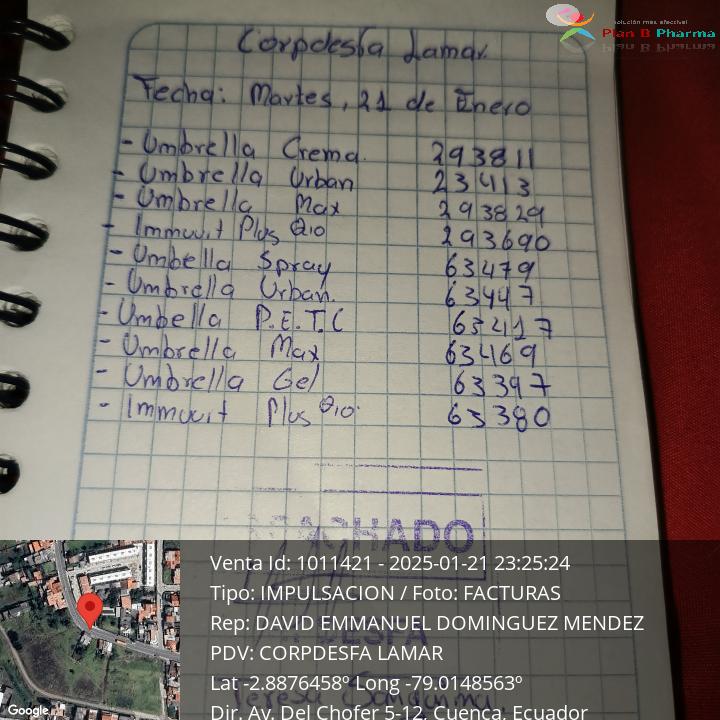 solución más efectiva!
Plan B Pharma
Corpdesfa Lamar.
Fecha: Martes, 21 de Enero
- Umbrella Crema. 293811
- Umbrella Urban 23413
- Umbrella Max 293829
- Immuvit Plus Q10 293690
- Umbella Spray 63479
- Umbrella Urban. 63447
- Umbella P.E.T.C 63417
- Umbrella Max 63469
- Umbrella Gel 63397
- Immuvit Plus Q10. 63380
MACHADO
Venta Id: 1011421 - 2025-01-21 23:25:24
Tipo: IMPULSACION / Foto: FACTURAS
Rep: DAVID EMMANUEL DOMINGUEZ MENDEZ
PDV: CORPDESFA LAMAR
Lat -2.8876458º Long -79.0148563º
Dir. Av. Del Chofer 5-12, Cuenca, Ecuador
Google